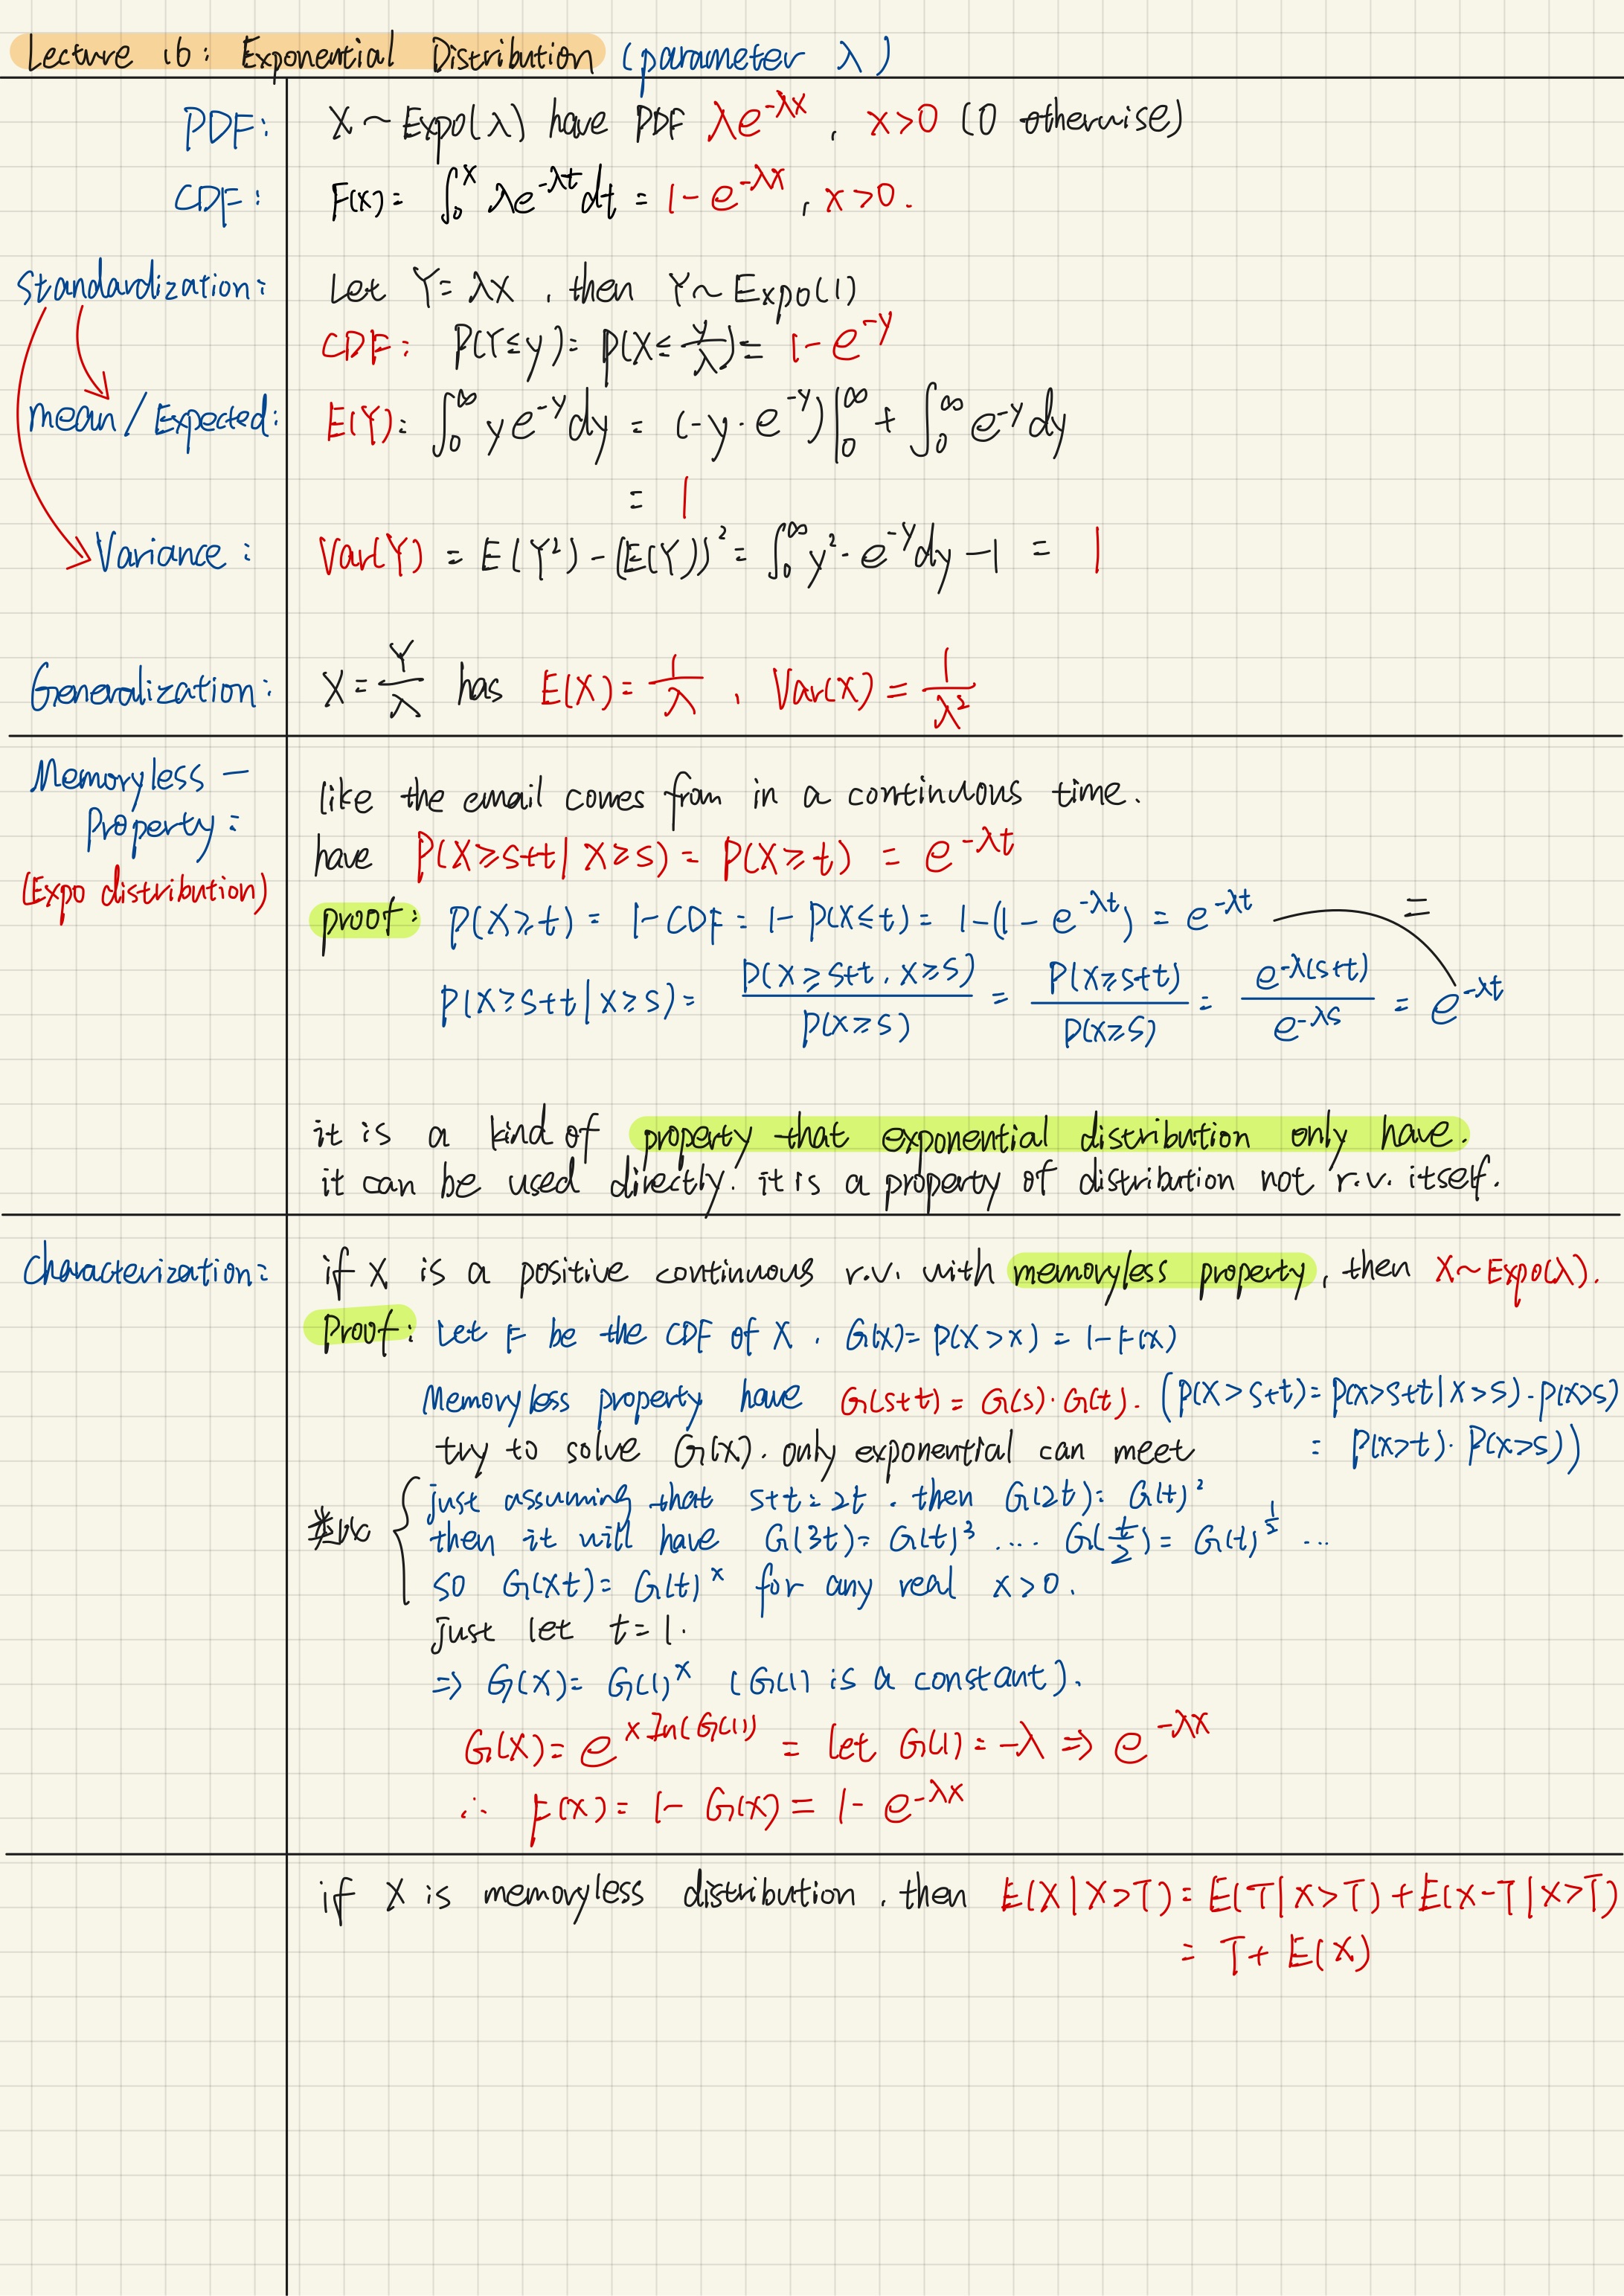 Lecture 16: Exponential Distribution (parameter λ)
PDF: X ~ Expo(λ) have PDF λe^{-λx}, x>0 (0 otherwise)
CDF: F(x) = ∫_0^x λe^{-λt}dt = 1-e^{-λx}, x>0.
Standardization: Let Y=λX, then Y~Expo(1)
CDF: P(Y≤y) = P(X≤y/λ) = 1-e^{-y}
mean/Expected: E(Y) = ∫_0^∞ ye^{-y}dy = (-y·e^{-y})|_0^∞ + ∫_0^∞ e^{-y}dy
= 1
Variance: Var(Y) = E(Y²)-(E(Y))² = ∫_0^∞ y²·e^{-y}dy-1 = 1
Generalization: X=Y/λ has E(X)=1/λ, Var(X)=1/λ²
Memoryless -
Property:
(Expo distribution)
like the email comes from in a continuous time.
have P(X≥s+t|X≥s) = P(X≥t) = e^{-λt}
proof: P(X≥t) = 1-CDF = 1-P(X≤t) = 1-(1-e^{-λt}) = e^{-λt} =
P(X≥s+t|X≥s) = P(X≥s+t, X≥s)/P(X≥s) = P(X≥s+t)/P(X≥s) = e^{-λ(s+t)}/e^{-λs} = e^{-λt}
it is a kind of property that exponential distribution only have.
it can be used directly. it is a property of distribution not r.v. itself.
Characterization: if X is a positive continuous r.v. with memoryless property, then X~Expo(λ).
Proof: Let F be the CDF of X. G(x)=P(X>x) = 1-F(x)
Memoryless property have G(s+t) = G(s)·G(t). (P(X>s+t)=P(X>s+t|X>s)·P(X>s)
try to solve G(x). only exponential can meet = P(X>t)·P(X>s))
类似 { just assuming that s+t=2t. then G(2t)=G(t)²
then it will have G(3t)=G(t)³ .... G(t/2) = G(t)^{1/2} ...
so G(xt)=G(t)^x for any real x>0.
just let t=1.
⇒ G(x)=G(1)^x (G(1) is a constant).
G(x)=e^{x ln(G(1))} = let G(1)=-λ ⇒ e^{-λx}
∴ F(x) = 1-G(x) = 1-e^{-λx}
if X is memoryless distribution, then E(X|X>T) = E(T|X>T)+E(X-T|X>T)
= T+E(X)